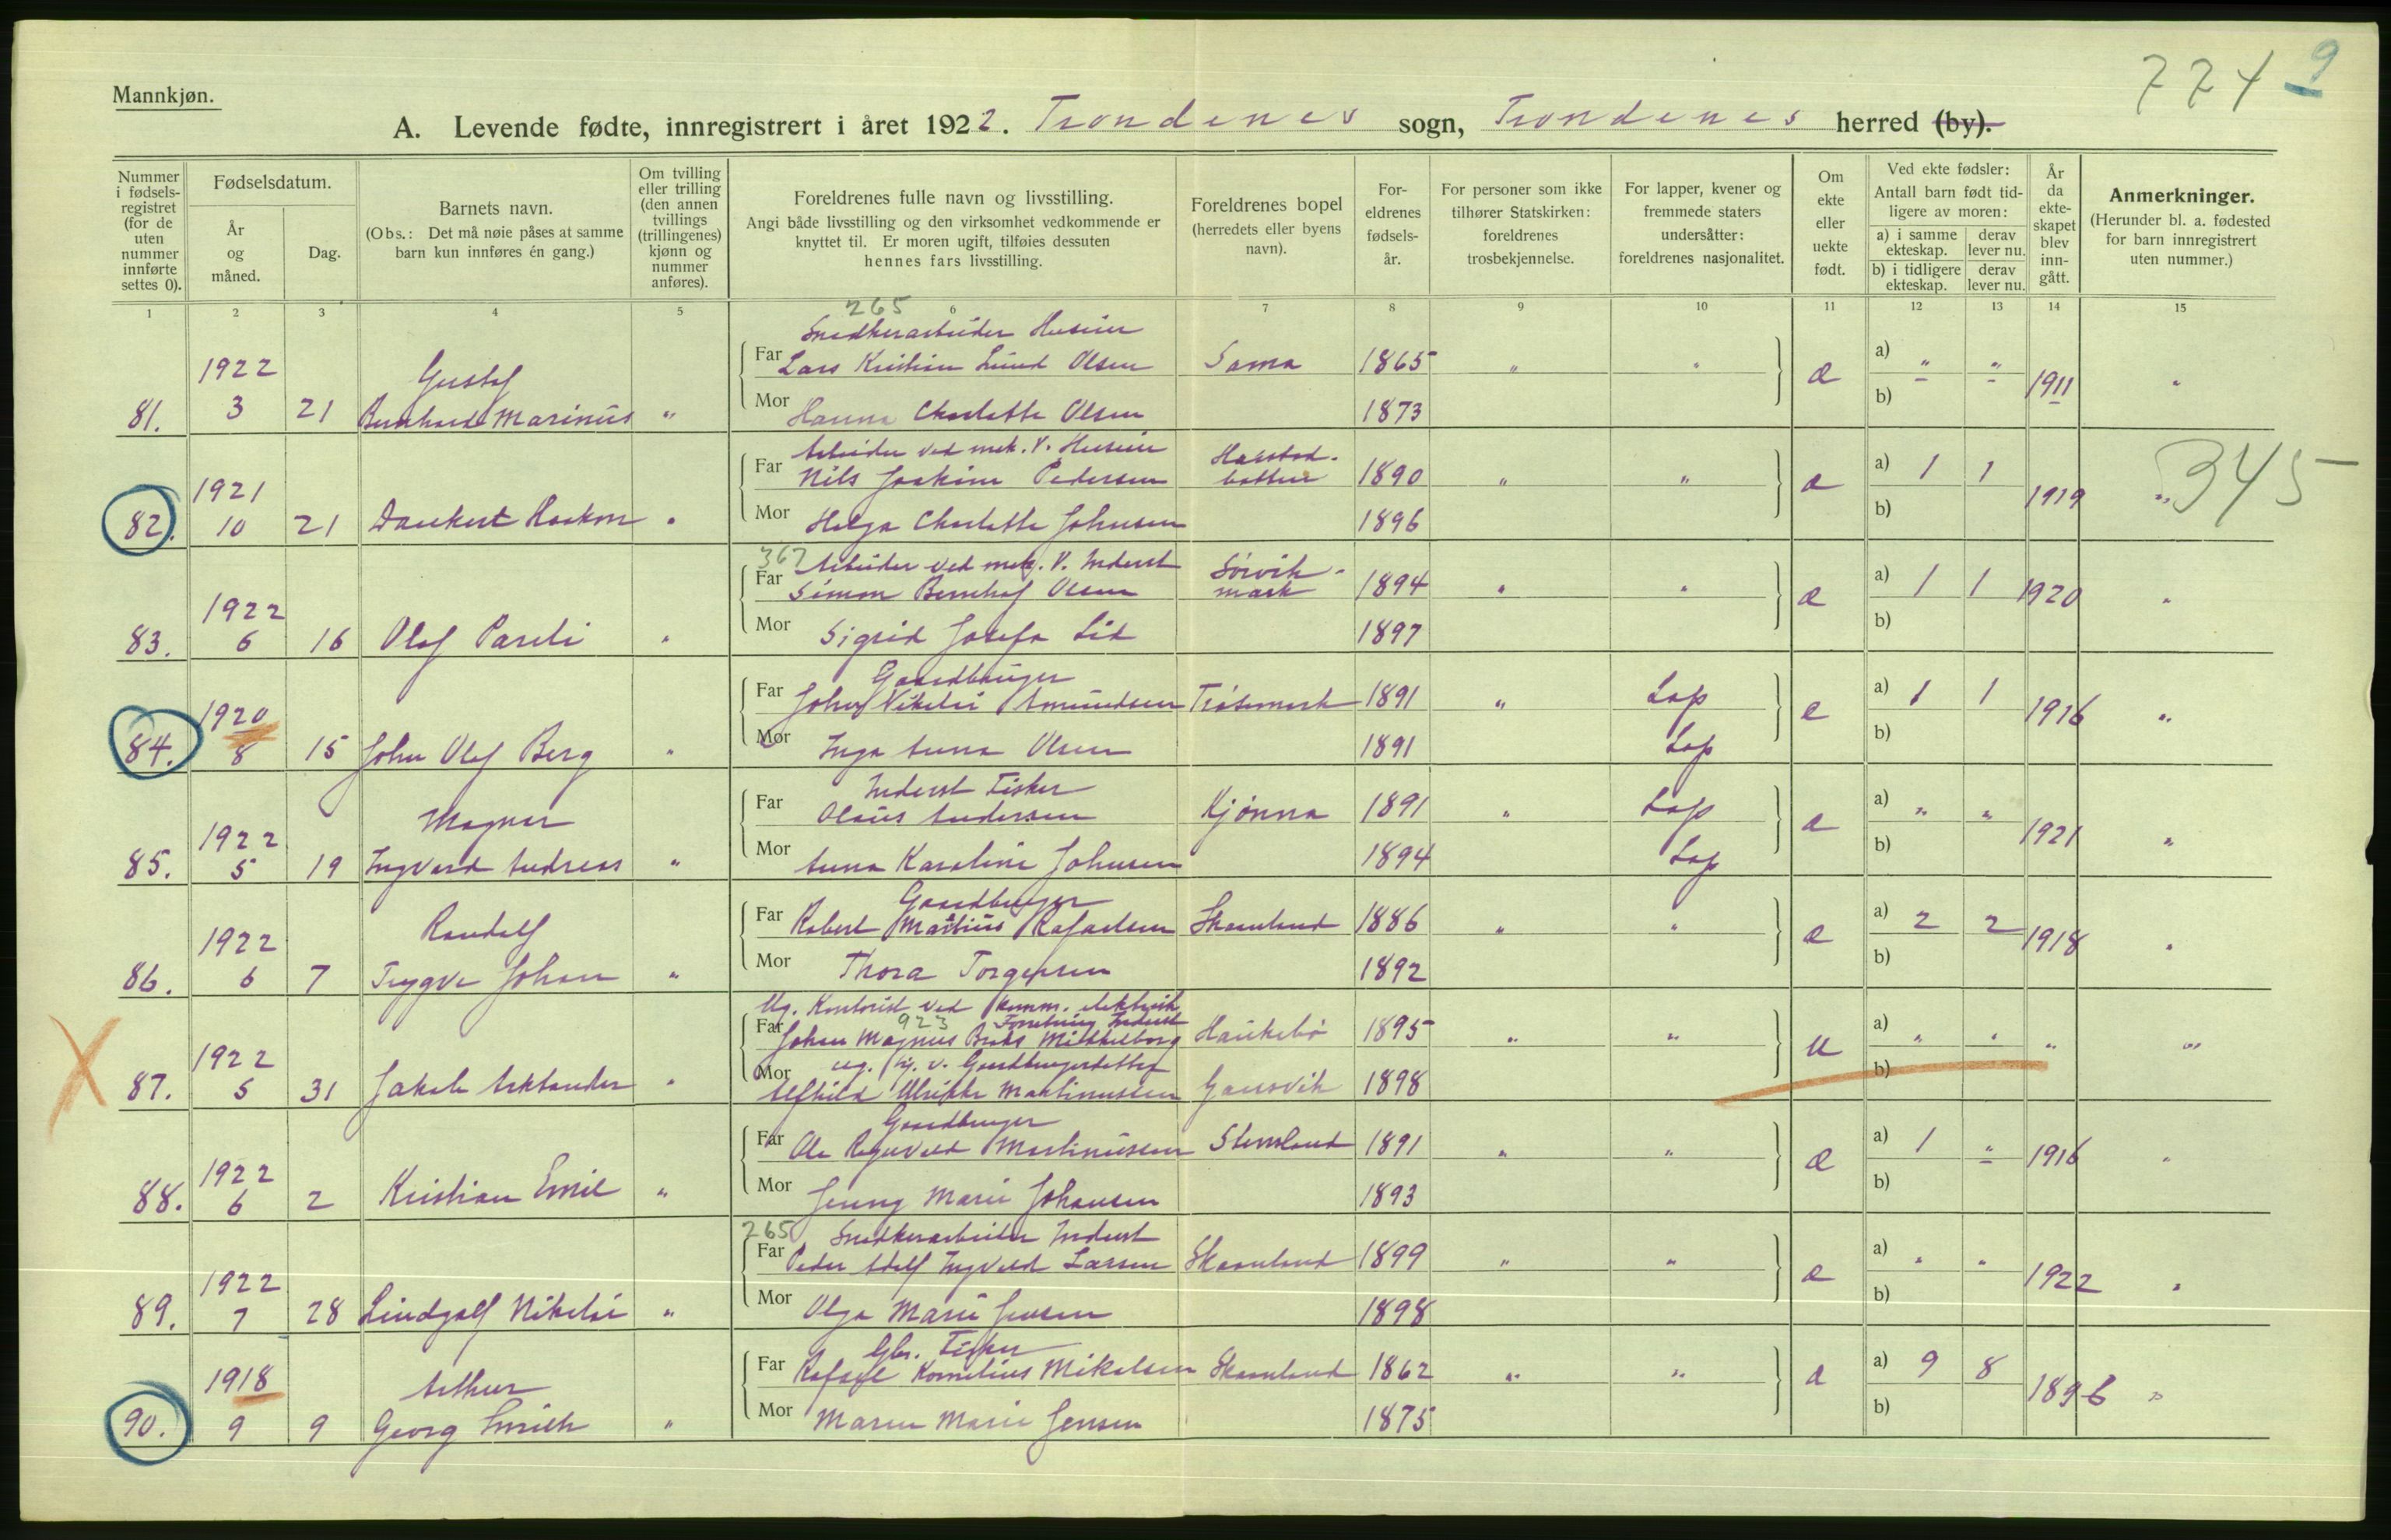 774 9
Mannkjøn.
A. Levende fødte, innregistrert i året 1922. Trondenes sogn, Trondenes herred (by).
Nummer i fødsels-registret (for de uten nummer innførte settes 0).
Fødselsdatum.
År og måned.
Dag.
Barnets navn.
(Obs.: Det må nøie påses at samme barn kun innføres én gang.)
Om tvilling eller trilling (den annen tvillings (trillingenes) kjønn og nummer anføres).
Foreldrenes fulle navn og livsstilling.
Angi både livsstilling og den virksomhet vedkommende er knyttet til. Er moren ugift, tilføies dessuten hennes fars livsstilling.
Foreldrenes bopel
(herredets eller byens navn).
For-eldrenes fødsels-år.
For personer som ikke tilhører Statskirken: foreldrenes trosbekjennelse.
For lapper, kvener og fremmede staters undersåtter: foreldrenes nasjonalitet.
Om ekte eller uekte født.
Ved ekte fødsler:
Antall barn født tid-ligere av moren:
a) i samme ekteskap.
derav lever nu.
b) i tidligere ekteskap.
derav lever nu.
År da ekte-skapet blev inn-gått.
Anmerkninger.
(Herunder bl. a. fødested for barn innregistrert uten nummer.)
1 2 3 4 5 6 7 8 9 10 11 12 13 14 15
265
Snedkerarbeider Huseier
1922 Gustaf Far Lars Kristian Lund Olsen Sama 1865 " " a) " " 1911 "
81. 3 21 Bernhard Marinus " Mor Hanna Charlotte Olsen 1873 b)
Arbeider ved mek. V. Huseier Harstad-
1921 Far Nils Joakim Pedersen botten 1890 " " a) 1 1 1919 " 345
82. 10 21 Dankert Haakon " Mor Helga Charlotte Johnsen 1896 b)
367 Arbeider ved mek. V. Inderst Sørvik-
1922 Far Simon Bernhof Olsen mark 1894 " " a) 1 1 1920 "
83. 6 16 Olaf Pareli " Mor Sigrid Josefa Lid 1897 b)
Gaardbruger
1920 Far John Nikolai Amundsen 1891 " Lap e a) 1 1 1916 "
84. 8 15 John Olaf Berg " Mor Inga Anna Olsen 1891 Lap b)
Inderst Fisker
1922 Magnar Far Olaus Andersen Kjønna 1891 " Lap a) " " 1921 "
85. 5 19 Ingvard Andreas " Mor Anna Karoline Johnsen 1894 Lap b)
Gaardbruger
1922 Randolf Far Robert Martinus Rafaelsen Skaanland 1886 " " a) 2 2 1918 "
86. 6 7 Trygve Johan " Mor Thora Torgersen 1892 b)
Ug. Kontorist ved komm. elektrisk
923 Forretning Inderst
1922 Far Johan Magnus Mikkelborg Haukebø 1895 " " u a) " " " "
ug. v. Gaardbrugerdatter
87. 5 31 Jakob Arktander " Mor Alfhild Ulrikke Martinussen Gausvik 1898 b)
Gaardbruger
1922 Far Ole Ragnvald Martinussen Stensland 1891 " " a) 1 " 1916 "
88. 6 2 Kristian Emil " Mor Jenny Marie Johansen 1893 b)
265 Snedkerarbeider Inderst
1922 Far Peder Adolf Ingvald Larsen Skaanland 1899 " " a) " " 1922 "
89. 7 28 Lindgolf Nikolai " Mor Olga Marie Jensen 1898 b)
Gbr. Fisker
1918 Arthur Far Rafael Kornelius Mikalsen Skaanland 1862 " " a) 9 8 1896 "
90. 9 9 Georg " Mor Maren Marie Jensen 1875 b)